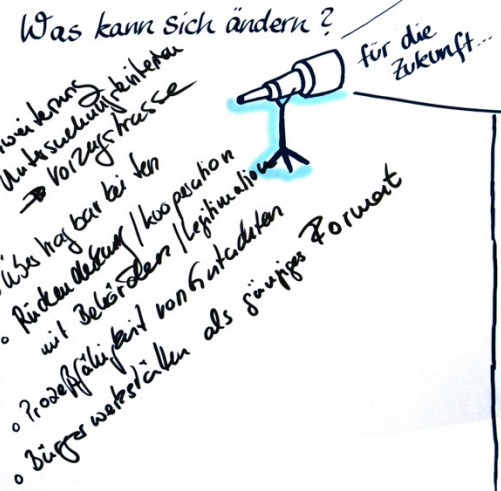 Was kann sich ändern?
für die
Zukunft...
Untersuchungskriterien
→ Vorzugstrasse
Übertragbarkeiten
• Rückendeckung/Kooperation
mit Behörden/Legitimation
• Prozeßfähigkeit von Gutachten
• Bürgerwerkstätten als gängiges Format